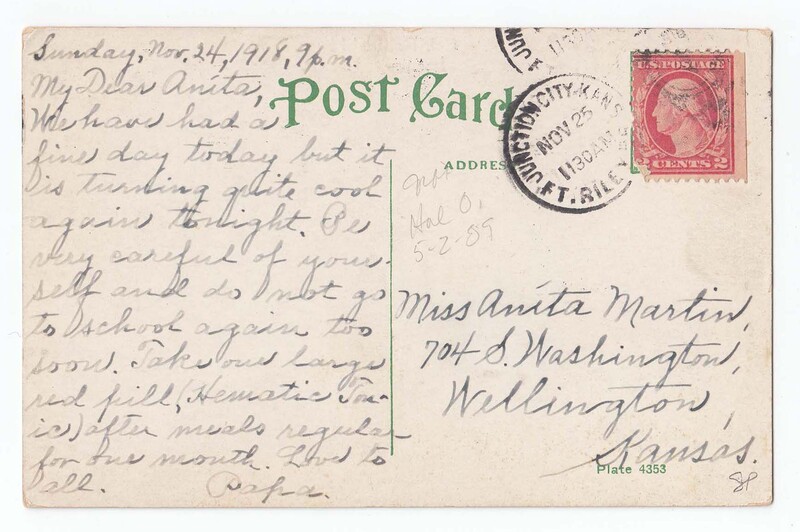 Sunday, Nov. 24, 1918, 9 p.m.
My Dear Anita,
We have had a
fine day today but it
is turning quite cool
again tonight. Be
very careful of your-
self and do not go
to school again too
soon. Take one large
red pill, (Hematic Ton-
ic) after meals regular
for one month. Love to
all. Papa.
Post Card
ADDRESS
Hal O,
5-2-89
JUNCTION CITY-KANS
NOV 25
1130AM
FT. RILEY
JUN
1130A
FT.
U.S. POSTAGE
2 CENTS 2
Miss Anita Martin,
704 S. Washington,
Wellington,
Kansas.
Plate 4353